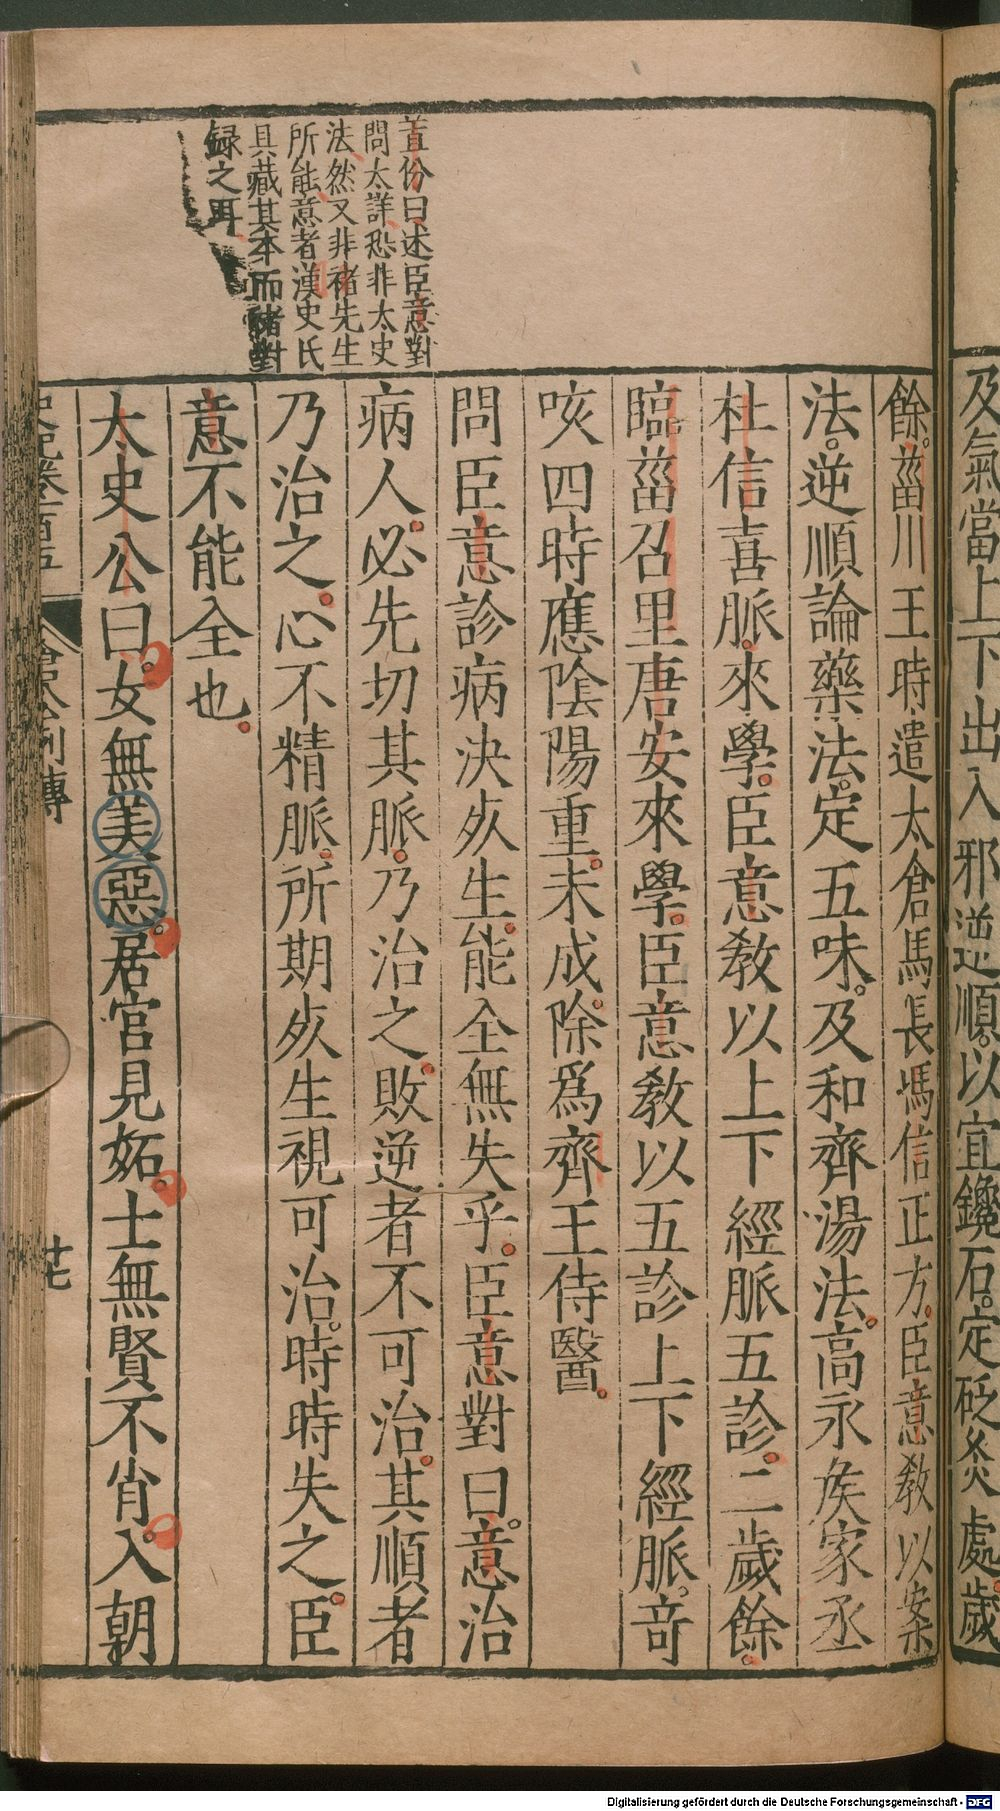 及氣當上下出入邪逆順以宜鑱石定砭灸處歲
餘菑川王時遣太倉馬長馮信正方臣意教以案
法逆順論藥法定五味及和齊湯法高永矦家丞
杜信喜脈來學臣意教以上下經脈五診二歲餘
臨菑召里唐安來學臣意教以五診上下經脈奇
咳四時應陰陽重未成除爲齊王侍醫
問臣意診病決死生能全無失乎臣意對曰意治
病人必先切其脈乃治之敗逆者不可治其順者
乃治之心不精脈所期死生視可治時時失之臣
意不能全也
太史公曰女無美惡居宮見妬士無賢不肖入朝
董份曰述臣意對
問太詳恐非太史
法然又非褚先生
所能意者漢史氏
具藏其本而褚對
録之耳
史記卷一百五 倉公列傳 廿七
Digitalisierung gefördert durch die Deutsche Forschungsgemeinschaft - DFG